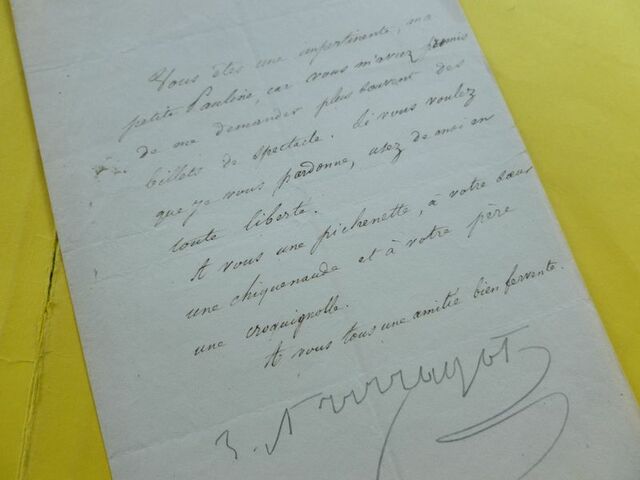 Vous êtes une impertinente, ma
petite Pauline, car vous m'aviez promis
de me demander plus souvent des
billets de spectacle. Si vous voulez
que je vous pardonne, usez de moi en
toute liberté.
A vous une pichenette, à votre sœur
une chiquenaude et à votre père
une croquignolle.
A vous tous une amitié bien fervente.